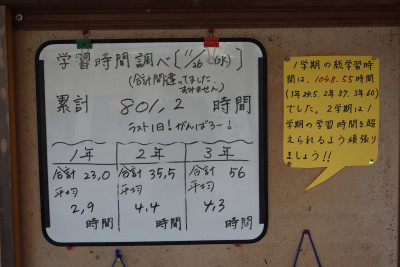 学習時間調べ(11/26(水))
(合計間違ってました。
すみません)
累計 801,2 時間
ラスト1日!がんばろー!
1年 2年 3年
合計 23,0 合計 35,5 合計 56
平均 平均 平均
2,9 4,4 4,3
時間 時間 時間
1学期の総学習時
間は、1048.55時間
(1年29.5、2年37、3年60)
でした。2学期は1
学期の学習時間を超
えられるよう頑張り
ましょう!!